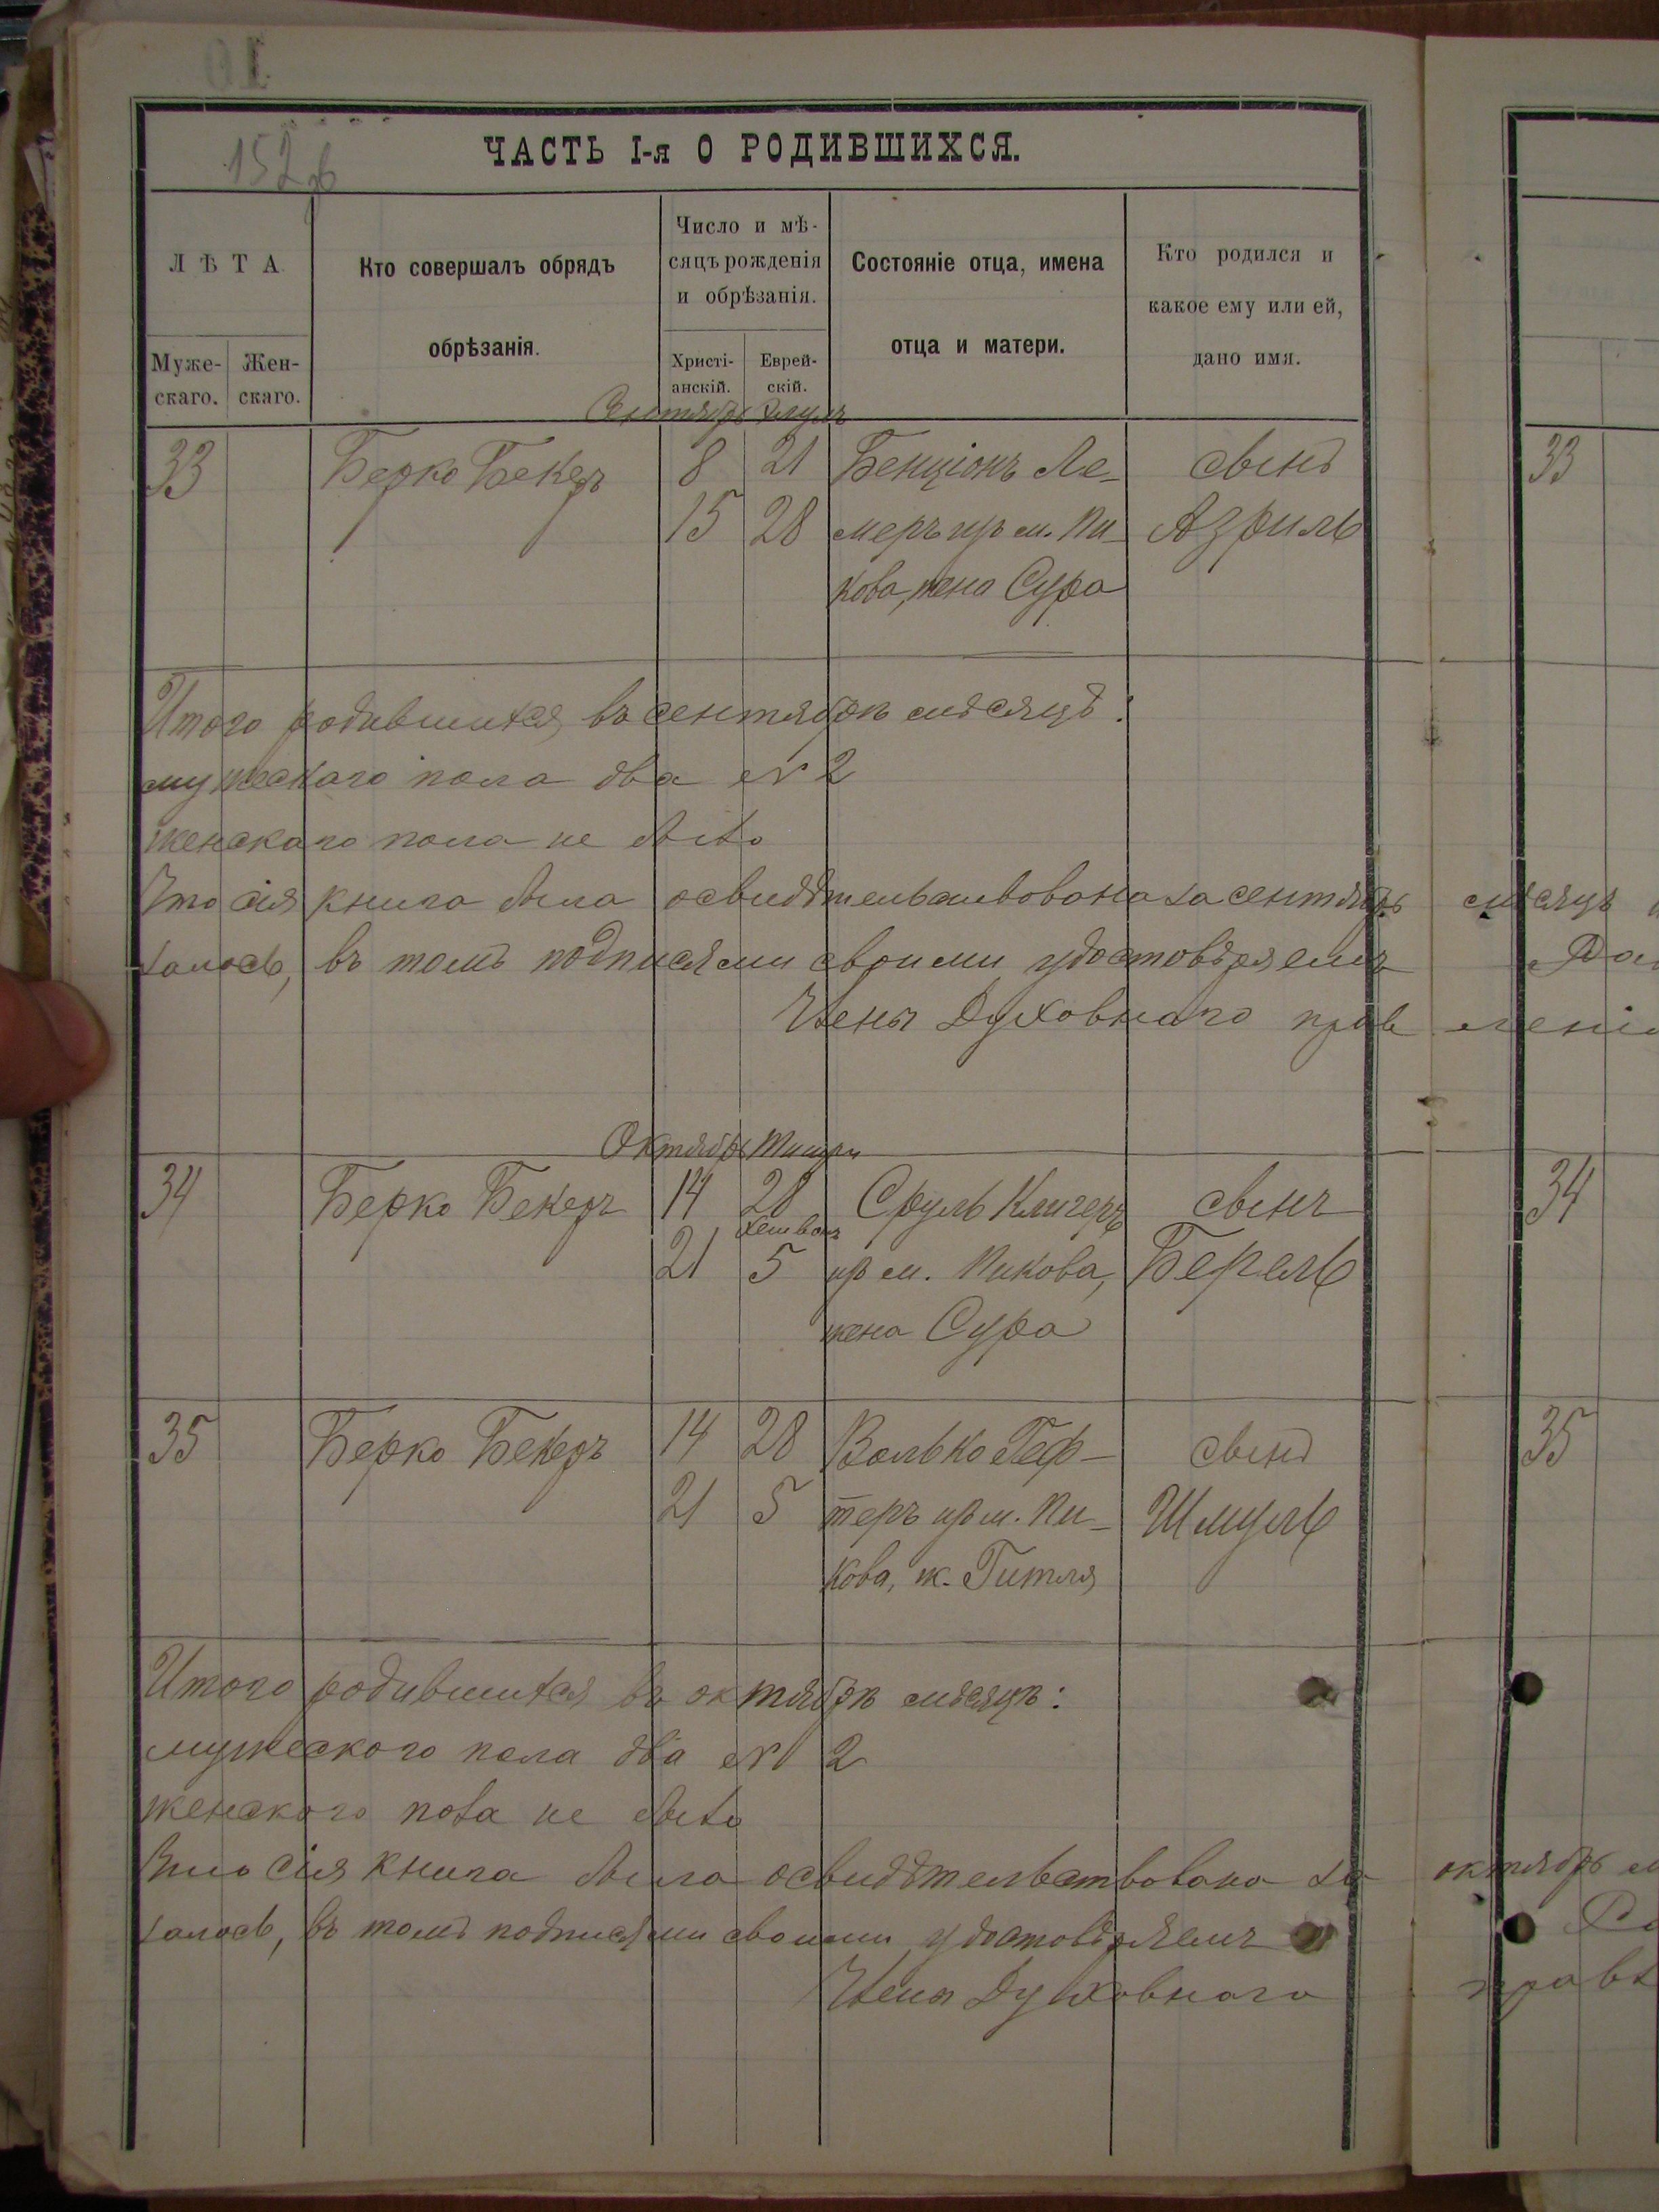 152об
ЧАСТЬ I-я О РОДИВШИХСЯ.
ЛѢТА
Муже-
скаго.
Жен-
скаго.
Кто совершалъ обрядъ
обрѣзанія.
Число и мѣ-
сяцъ рожденія
и обрѣзанія.
Христі-
анскій.
Еврей-
скій.
Состояніе отца, имена
отца и матери.
Кто родился и
какое ему или ей,
дано имя.
Сентябрь Элулъ
33 Берко Бекеръ 8 21 Бенціонъ Ле- сынъ 33
15 28 меръ изъ м. Пи- Азриль
кова, жена Сура
Итого родившихся въ сентябрѣ мѣсяцѣ:
мужескаго пола два № 2
женскаго пола не было
Что сія книга была освидѣтельствована за сентябрь мѣсяцъ
залось, въ томъ подписями своими удостовѣряемъ
Члены Духовнаго прав ленія
Октябрь Тишри
34 Берко Бекеръ 14 28 Сруль Клигеръ сынъ 34
Хешванъ
21 5 изъ м. Пикова, Берель
жена Сура
35 Берко Бекеръ 14 28 Волько Геф- сынъ 35
21 5 теръ изъ м. Пи- Шмуль
кова, ж. Гитля
Итого родившихся въ октябрѣ мѣсяцѣ:
мужескаго пола два № 2
женскаго пола не было
Что сія книга была освидѣтельствована за октябрь м
залось, въ томъ подписями своими удостовѣряемъ
Члены Духовнаго правл